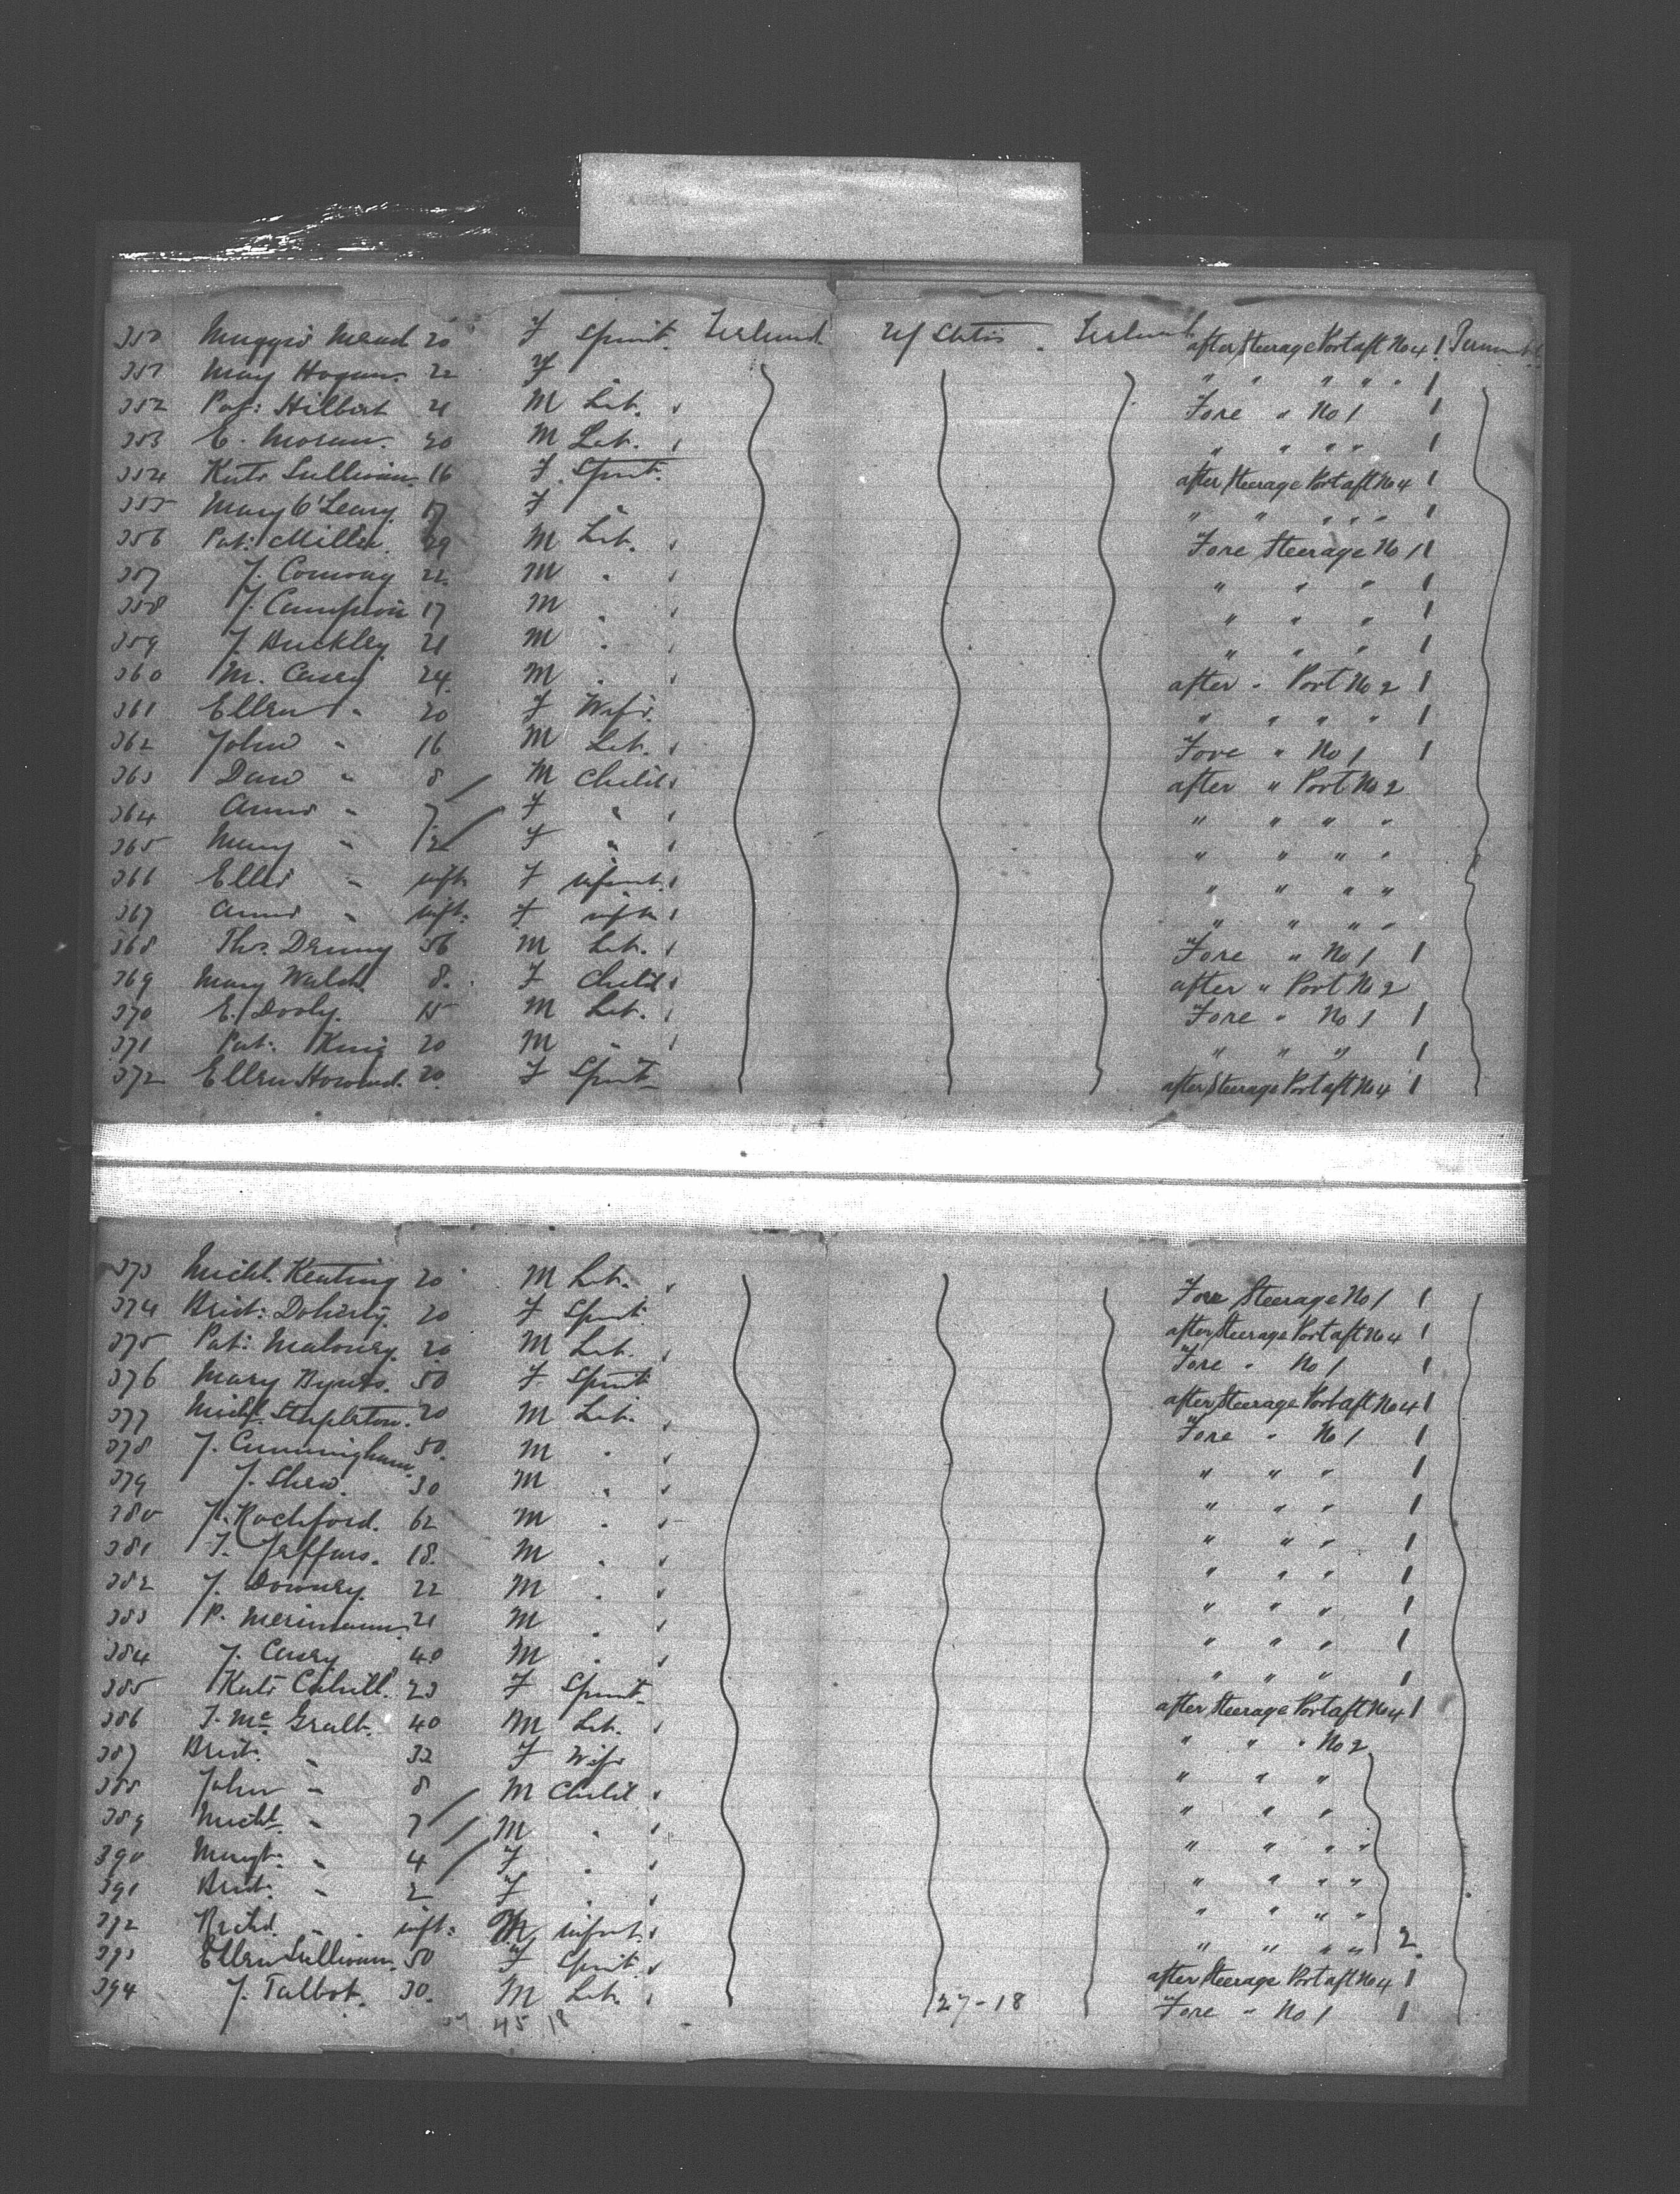 350 Maggie Mead 20 F Spinst. Ireland U/States Ireland after Steerage Port aft No 4 1
351 May Hogan. 22 F " " " " " 1
352 Pat: Hilbert 21 M Lab. Fore " No 1 1
353 E. Moran. 20 M Lab. " " " " 1
354 Kate Sullivan. 16 F Spinst. after Steerage Port aft No 4 1
355 Mary O'Leary. 17 F " " " " " " 1
356 Pat: Miller. 29 M Lab. Fore Steerage No 1 1
357 J. Conway 22 M " " " " 1
358 J. Campion 17 M " " " " 1
359 J. Buckley 21 M " " " " 1
360 M. Casey 24 M " after " Port No 2 1
361 Ellen " 20 F Wife " " " " 1
362 John " 16 M Lab. Fore " No 1 1
363 Dan " 8 M Child after " Port No 2
364 Anne " 7 F " " " " "
365 Mary " 2 F " " " " "
366 Ellie " inft F infant " " " "
367 Anne " inft: F infn " " " "
368 Thos. Denny 56 M Lab. Fore " No 1 1
369 Mary Walsh 8. F Child after " Port No 2
370 E. Dooly. 15 M Lab. Fore " No 1 1
371 Pat: King 20 M " " " " 1
372 Ellen Howard. 20. F Spinst after Steerage Port aft No 4 1
373 Michl. Keating 20 M Lab. Fore Steerage No 1 1
374 Brid: Doherty. 20 F Spinst after Steerage Port aft No 4 1
375 Pat: Maloney. 20 M Lab. Fore " No 1 1
376 Mary Byers. 50 F Spinst after Steerage Port aft No 4 1
377 Michl. Stapleton. 20 M Lab. Fore " No 1 1
378 J. Cunningham. 50. M " " " " 1
379 J. Shea. 30 M " " " " 1
380 J. Rochford. 62 M " " " " 1
381 T. Jeffers. 18. M " " " " 1
382 J. Downey. 22 M " " " " 1
383 P. 21 M " " " " 1
384 J. Casey 40 M " " " " 1
385 Kate Cahill. 23 F Spinst after Steerage Port aft No 4 1
386 T. Mc Grath. 40 M Lab. " " " No 2
387 Brid: " 32 F Wife " " "
388 John " 8 M Child " " "
389 Michl. " 7 M " " " " "
390 Margt: " 4 F " " " " "
391 Brid: " 2 F " " " " "
392 Richd. " inft: M infant " " " " 2
393 Ellen Sullivan. 50 F Spinst after Steerage Port aft No 4 1
394 J. Talbot. 30. M Lab. Fore " No 1 1
27-18
45 18